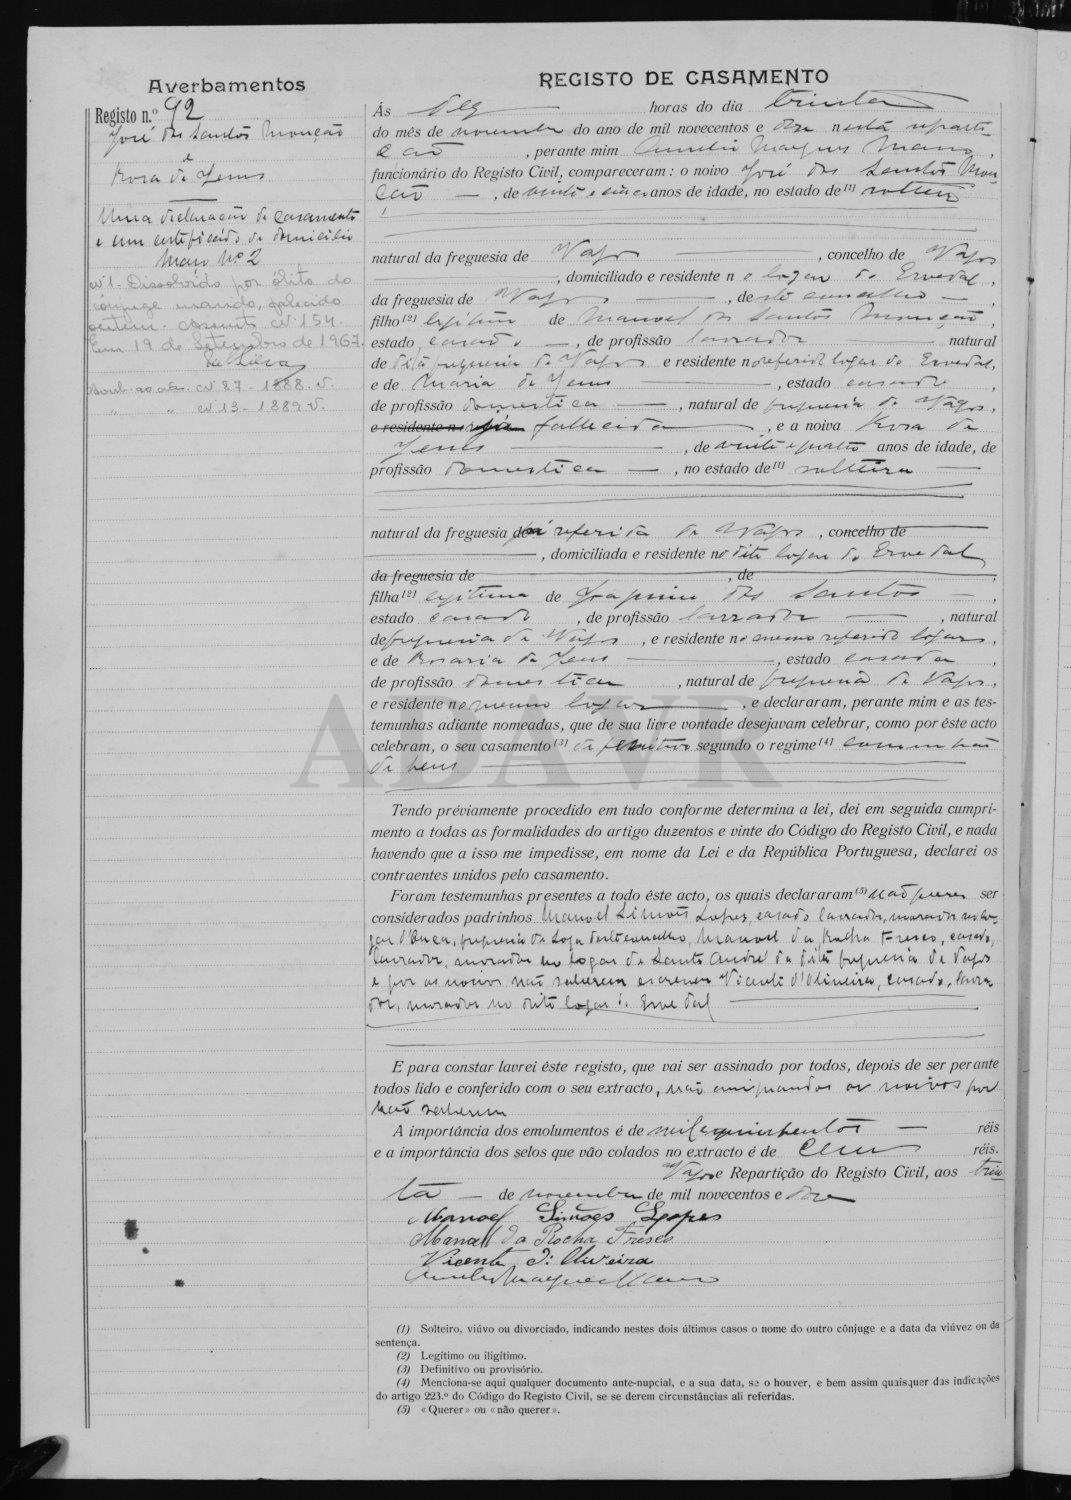 Averbamentos
Registo n.º 92
José dos Santos Monção
e
Rosa de Jesus
Uma declaração de casamento
e um certificado de domicilio
Maço Nº 2
Nº 1. Dissolvido por óbito do
cônjuge marido, falecido
ontem. Assento Nº 154.
Em 19 de Setembro de 1967.
Nº 87 - 1888. V.
" " Nº 13 - 1889 V.
REGISTO DE CASAMENTO
Ás dez horas do dia trinta
do mês de novembro do ano de mil novecentos e doze nesta reparti-
ção, perante mim Aurelio Marques Mano,
funcionário do Registo Civil, compareceram: o noivo José dos Santos Mon-
ção, de vinte e cinco anos de idade, no estado de (1) solteiro
natural da freguesia de Vagos, concelho de Vagos
, domiciliado e residente no logar do Ervedal,
da freguesia de Vagos, deste concelho,
filho (2) legitimo de Manoel dos Santos Monção,
estado casado, de profissão lavrador natural
de dita freguesia de Vagos e residente no referido logar do Ervedal,
e de Maria de Jesus, estado casada,
de profissão domestica, natural de freguesia de Vagos,
e residente n já fallecida, e a noiva Rosa de
Jesus, de vinte e quatro anos de idade, de
profissão domestica, no estado de (1) solteira
natural da freguesia já referida de Vagos, concelho de
, domiciliada e residente no dito logar do Ervedal
da freguesia de , de ,
filha (2) legitima de Joaquim dos Santos,
estado casado, de profissão lavrador, natural
de freguesia de Vagos, e residente no mesmo referido logar,
e de Rosaria de Jesus, estado casada,
de profissão domestica, natural de freguesia de Vagos,
e residente no mesmo logar, e declararam, perante mim e as tes-
temunhas adiante nomeadas, que de sua livre vontade desejavam celebrar, como por êste acto
celebram, o seu casamento (3) definitivo segundo o regime (4) comunhão
de bens
Tendo préviamente procedido em tudo conforme determina a lei, dei em seguida cumpri-
mento a todas as formalidades do artigo duzentos e vinte do Código do Registo Civil, e nada
havendo que a isso me impedisse, em nome da Lei e da República Portuguesa, declarei os
contraentes unidos pelo casamento.
Foram testemunhas presentes a todo êste acto, os quais declararam (5) não querer ser
considerados padrinhos Manoel Simões Lopes, casado, lavrador, morador no lo-
gar d'Ouca, freguesia da Soza deste concelho, Manoel da Rocha Fresco, casado,
lavrador, morador no logar de Santo André da dita freguesia de Vagos
e por os noivos não saberem escrever Vicente d'Oliveira, casado, lavra-
dor, morador no dito logar do Ervedal
E para constar lavrei êste registo, que vai ser assinado por todos, depois de ser perante
todos lido e conferido com o seu extracto, não assignando os noivos por
não saberem
A importância dos emolumentos é de mil e quinhentos réis
e a importância dos selos que vão colados no extracto é de cem réis.
Vagos e Repartição do Registo Civil, aos trin
ta de novembro de mil novecentos e doze
Manoel Simões Lopes
Manoel da Rocha Fresco
Vicente d'Oliveira
Aurelio Marques Mano
(1) Solteiro, viúvo ou divorciado, indicando nestes dois últimos casos o nome do outro cônjuge e a data da viúvez ou da
sentença.
(2) Legítimo ou iligítimo.
(3) Definitivo ou provisório.
(4) Menciona-se aqui qualquer documento ante-nupcial, e a sua data, se o houver, e bem assim quaisquer das indicações
do artigo 223.º do Código do Registo Civil, se se derem circunstâncias ali referidas.
(5) «Querer» ou «não querer».
ADAVR